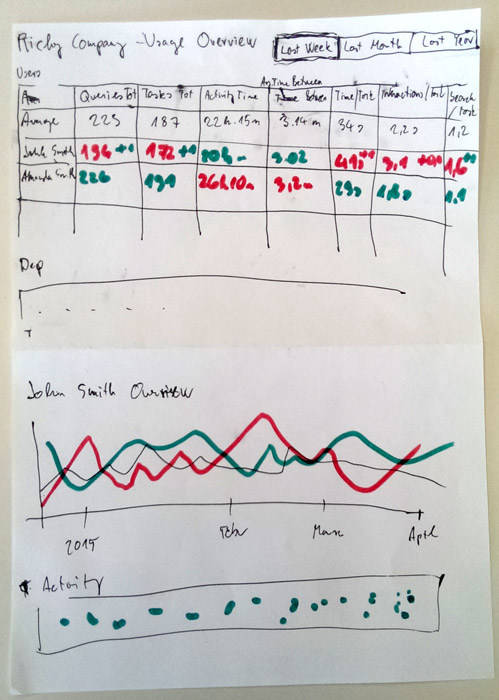 Richy Company - Usage Overview
Last Week
Last Month
Last Year
Users
Queries Tot
Tasks Tot
Activity Time
Av Time Between
Time/Task
Interactions/Task
Search/Task
Average
223
187
22h 15m
3.14m
34s
2,2s
1,2
John Smith
196
172
3.02
3,1
1,6
Amanda Smith
226
191
26h 10m
3,2m
29s
1,8s
1.1
Dep
John Smith Overview
2015
Febr
April
Activity